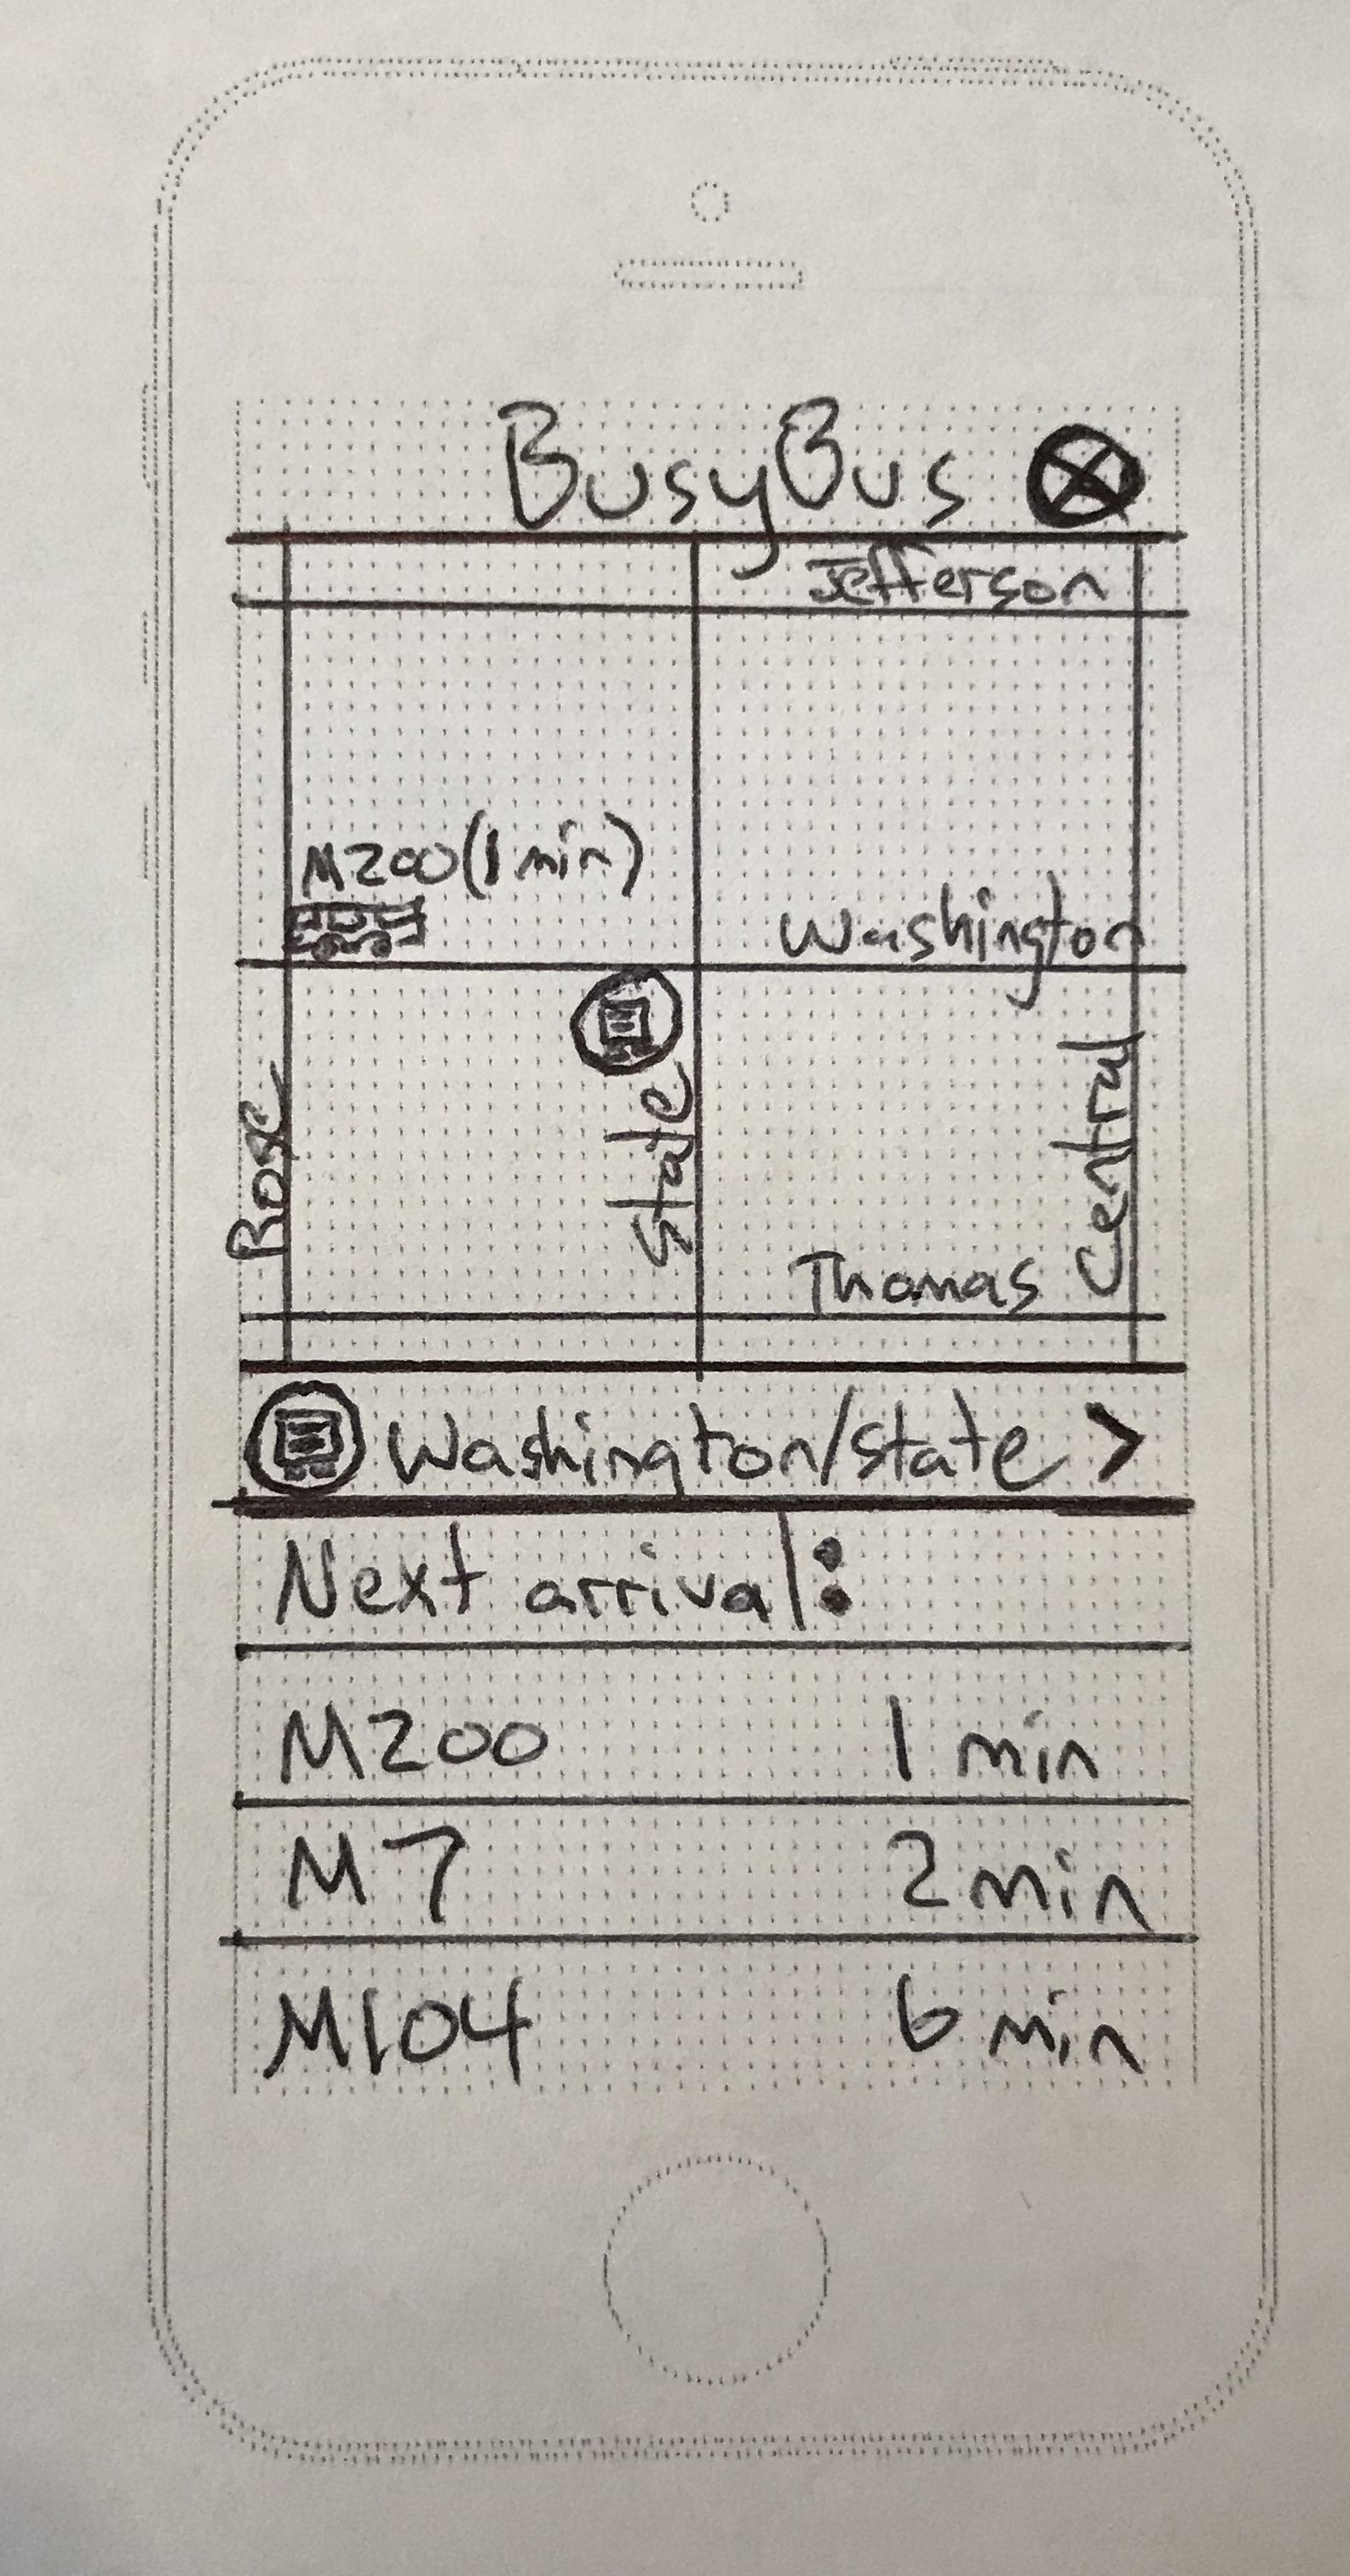 BusyBus
Jefferson
M200 (1 min)
Washington
Rose
State
Central
Thomas
Washington/State >
Next arrival:
M200 1 min
M7 2 min
M104 6 min